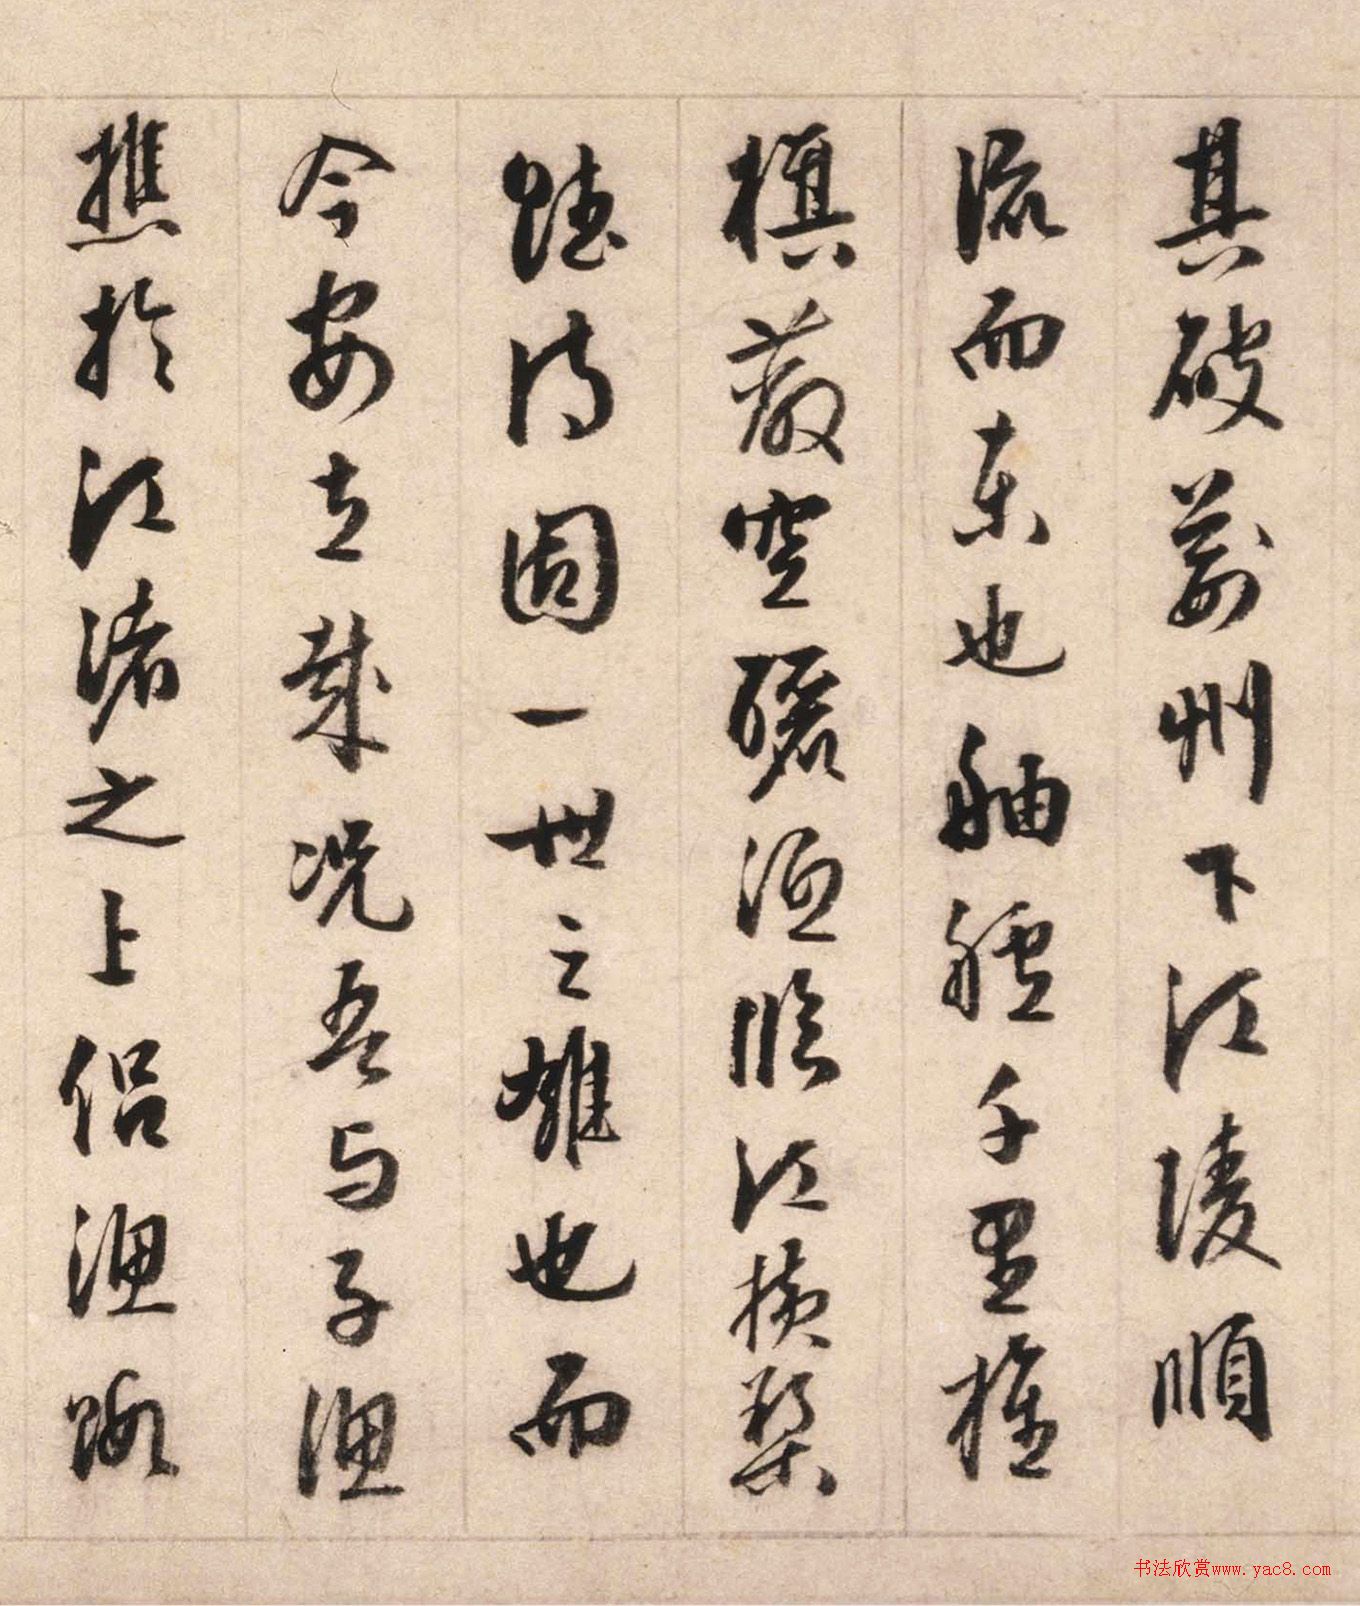 其破荊州下江陵順
流而東也舳艫千里旌
旗蔽空釃酒臨江橫槊
賦詩固一世之雄也而
今安在哉况吾与子漁
樵於江渚之上侣漁蝦
书法欣赏www.yac8.com